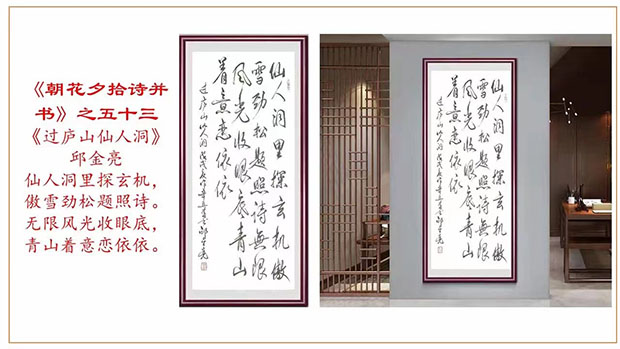 《朝花夕拾诗并
书》之五十三
《过庐山仙人洞》
邱金亮
仙人洞里探玄机,
傲雪劲松题照诗。
无限风光收眼底,
青山着意恋依依。
仙人洞里探玄机傲
雪劲松题照诗無限
风光收眼底青山
着意恋依依
过庐山仙人洞 戊戌
邱金亮
仙人洞里探玄机傲
雪劲松题照诗無限
风光收眼底青山
着意恋依依
过庐山仙人洞 戊戌
邱金亮